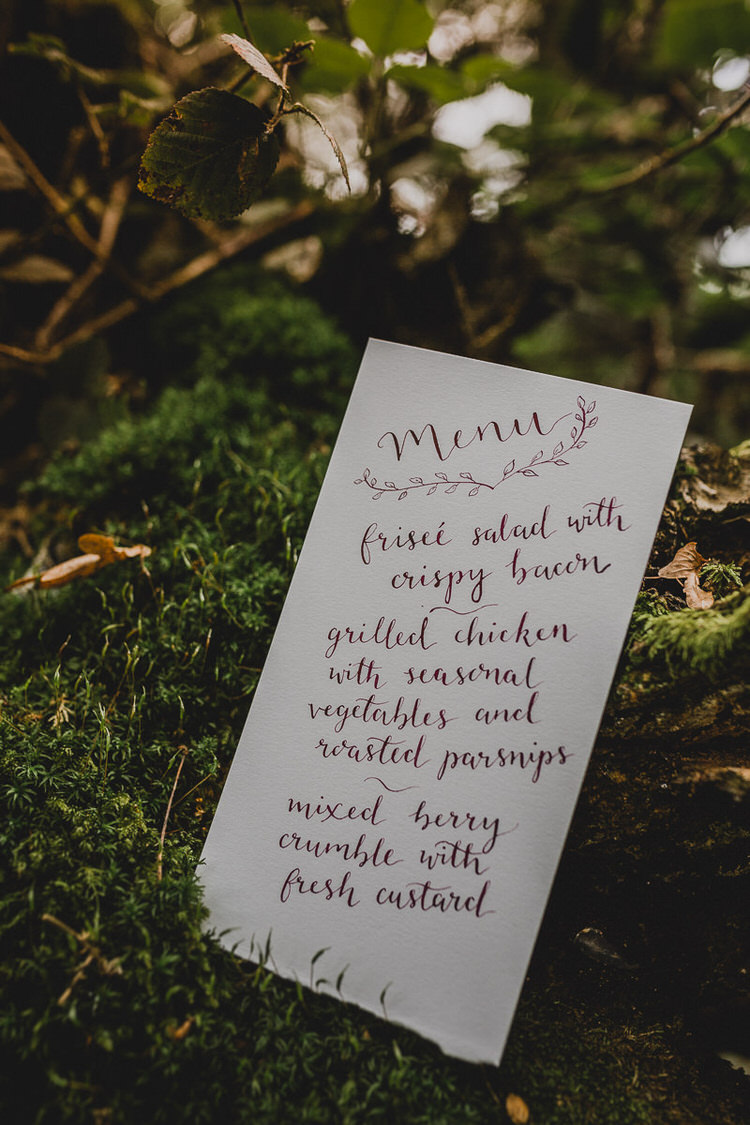 Menu
friseé salad with
crispy bacon
grilled chicken
with seasonal
vegetables and
roasted parsnips
mixed berry
crumble with
fresh custard